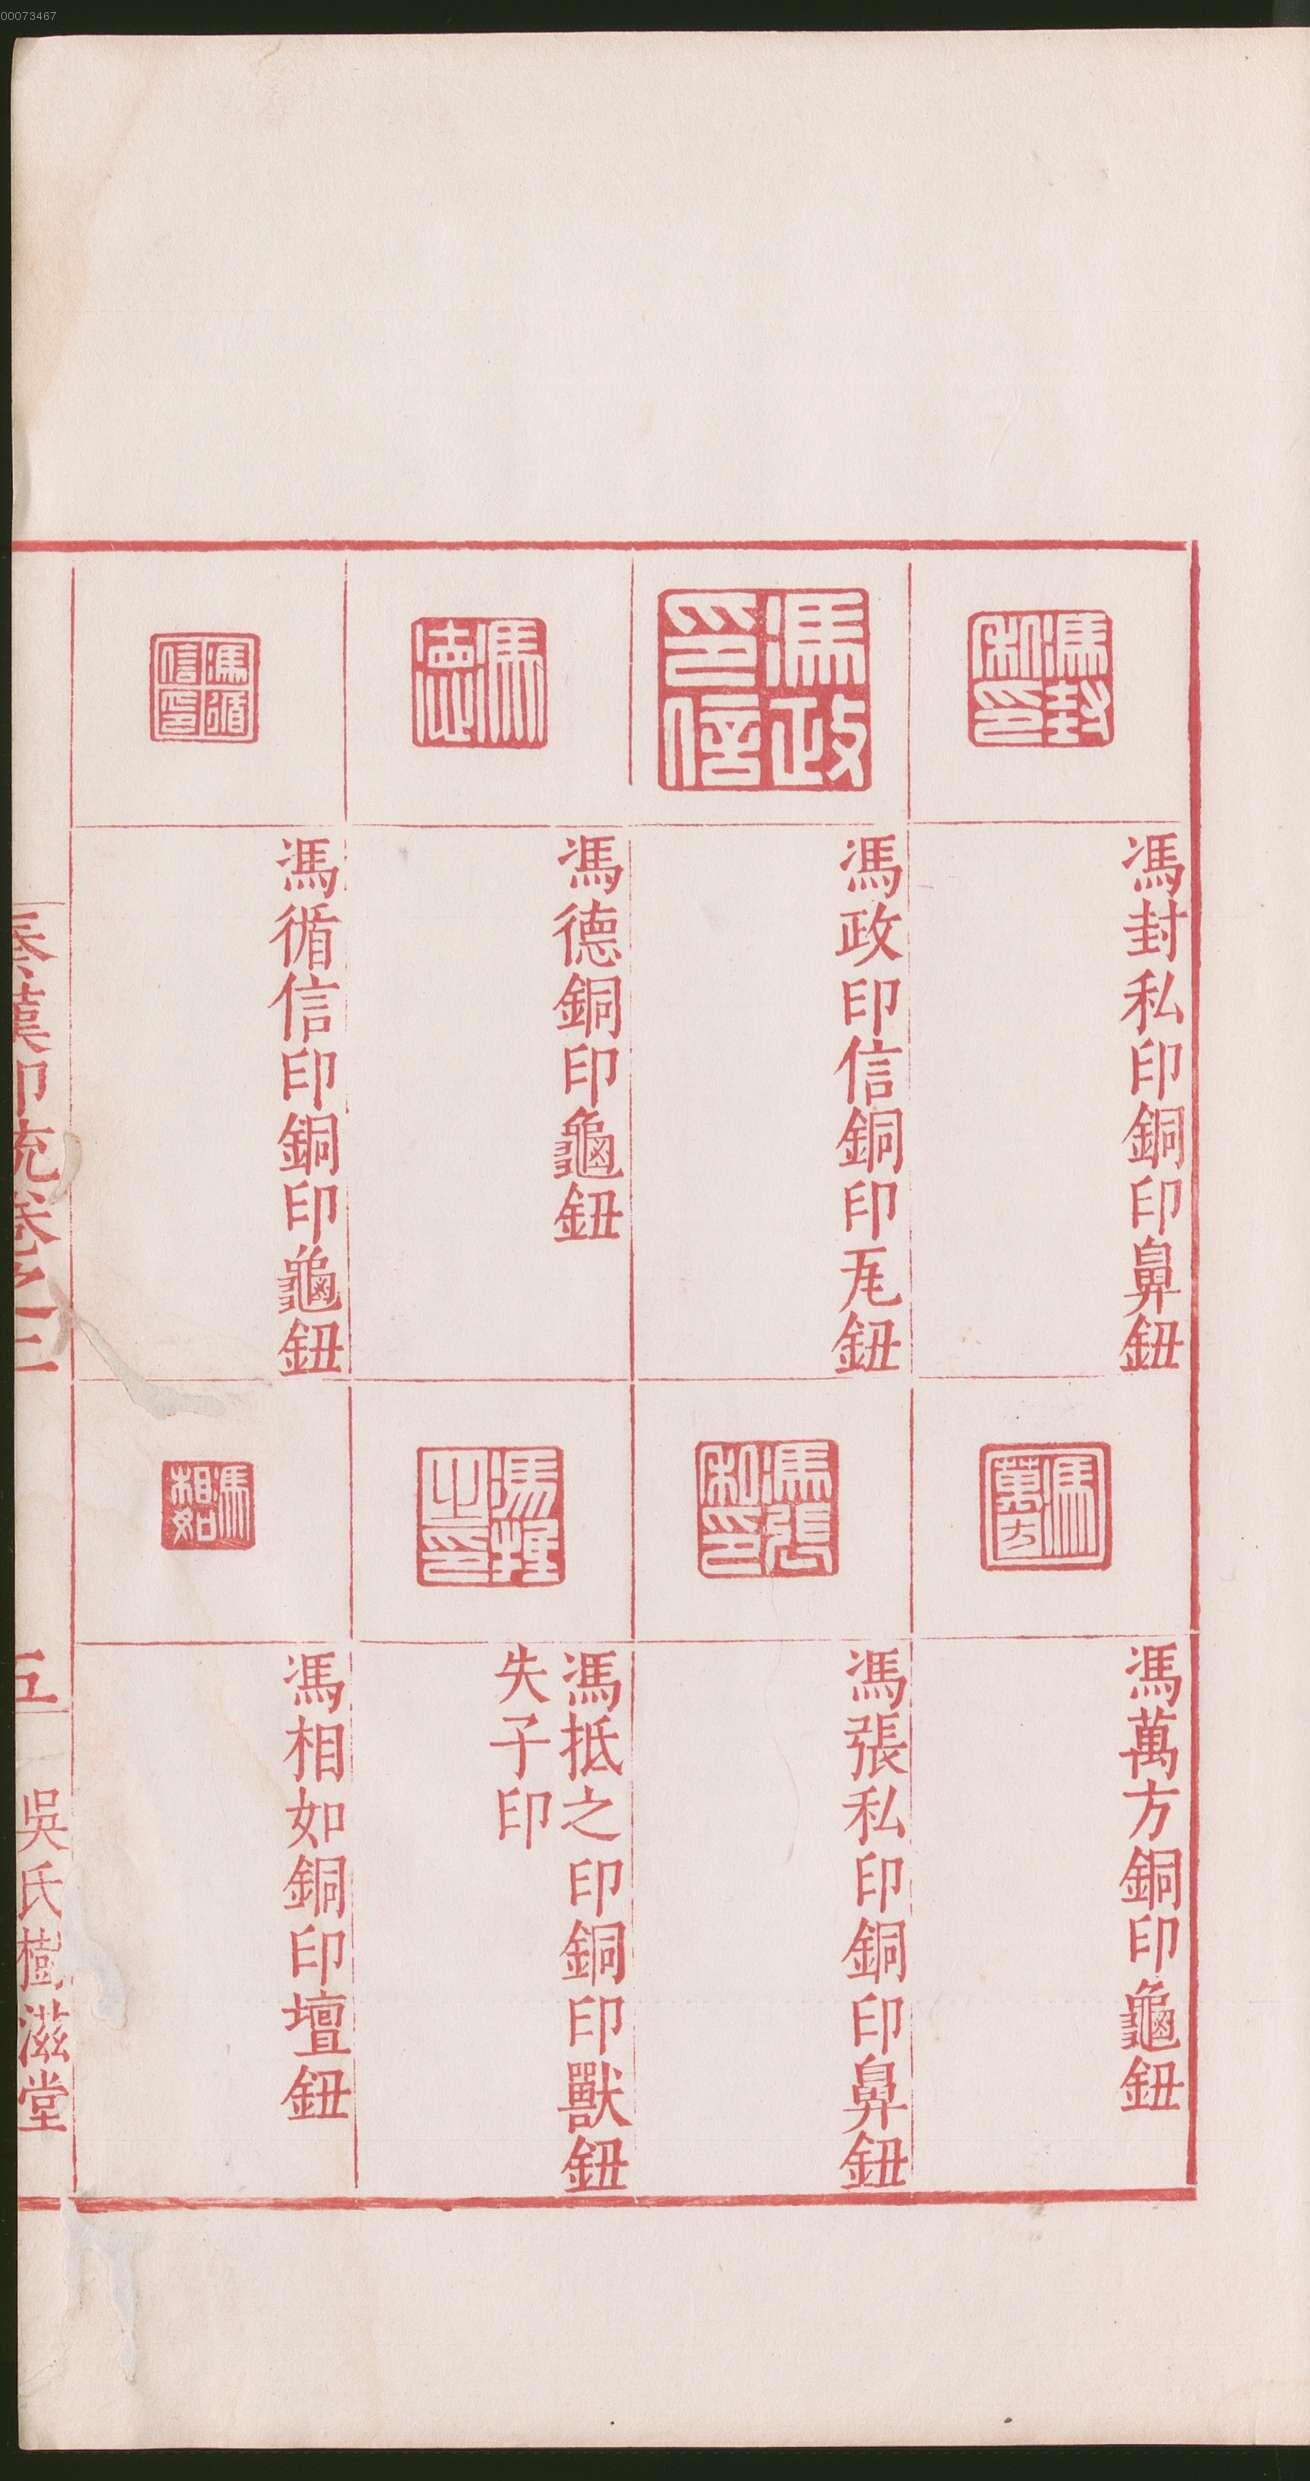 00073467
馮封私印
馮封私印銅印鼻鈕
馮政印信
馮政印信銅印瓦鈕
馮德
馮德銅印龜鈕
馮循信印
馮循信印銅印龜鈕
馮萬方
馮萬方銅印龜鈕
馮張私印
馮張私印銅印鼻鈕
馮抵之印
馮抵之印銅印獸鈕
失子印
馮相如
馮相如銅印壇鈕
秦漢印統卷之二
五
吳氏樹滋堂